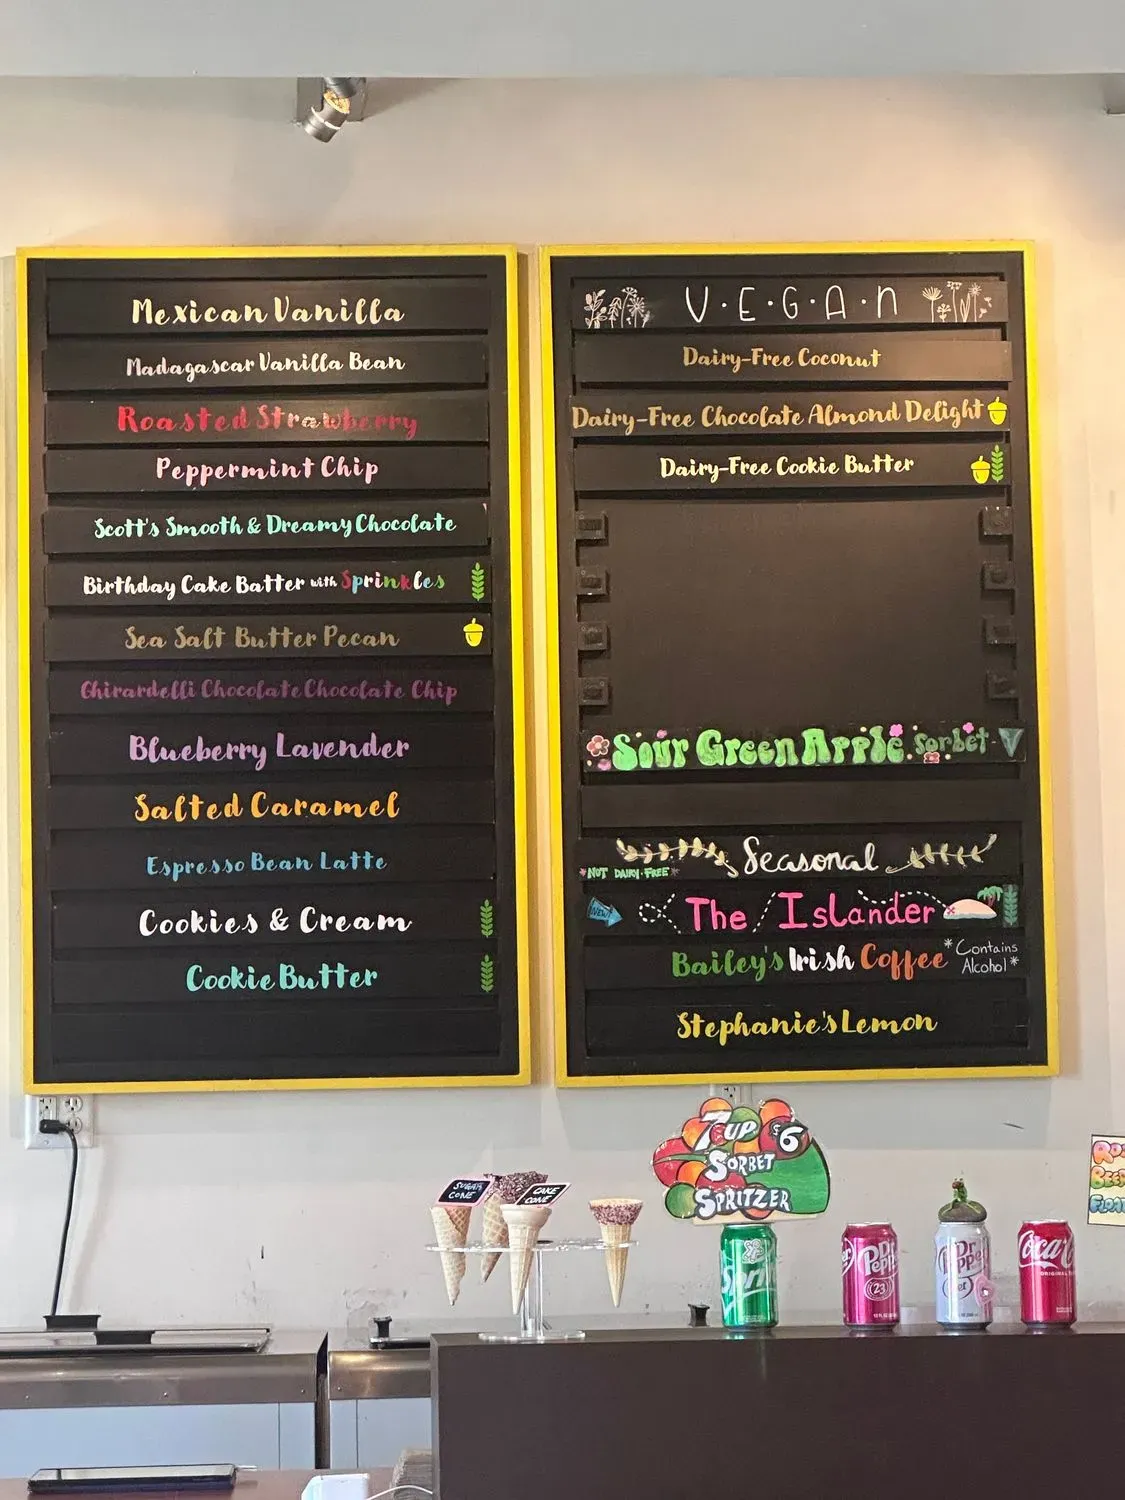 Mexican Vanilla
Madagascar Vanilla Bean
Roasted Strawberry
Peppermint Chip
Scott's Smooth & Dreamy Chocolate
Birthday Cake Batter with Sprinkles
Sea Salt Butter Pecan
Ghirardelli Chocolate Chocolate Chip
Blueberry Lavender
Salted Caramel
Espresso Bean Latte
Cookies & Cream
Cookie Butter
V·E·G·A·N
Dairy-Free Coconut
Dairy-Free Chocolate Almond Delight
Dairy-Free Cookie Butter
Sour Green Apple Sorbet V
Seasonal
*NOT DAIRY-FREE*
NEW!
The Islander
Bailey's Irish Coffee *Contains
Alcohol*
Stephanie's Lemon
7UP $6
SORBET
SPRITZER
SUGAR
CONE
CAKE
CONE
Dr
Pepper
23
Dr
Coca
ORIGINAL